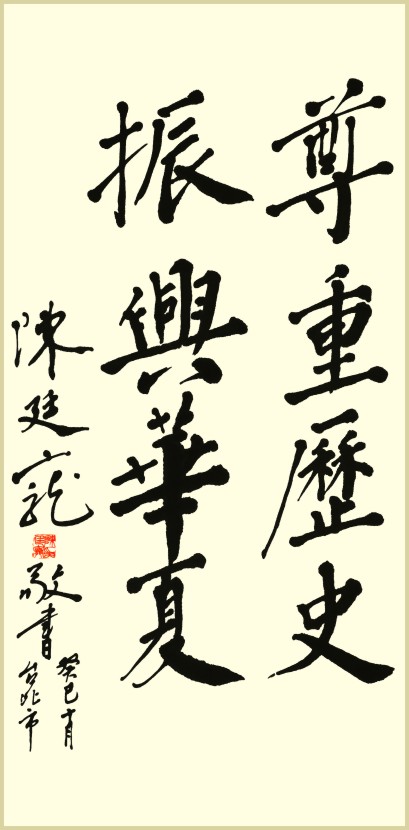 尊重歷史
振興華夏
陳廷寵敬書
癸巳十月
台北市